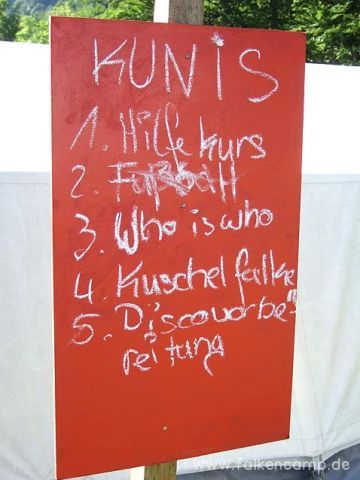 KUNIS
1. Hilfekurs
2. Fußball
3. Who is who
4. Kuschelfalke
5. Discovorbe-
reitung
www.falkencamp.de